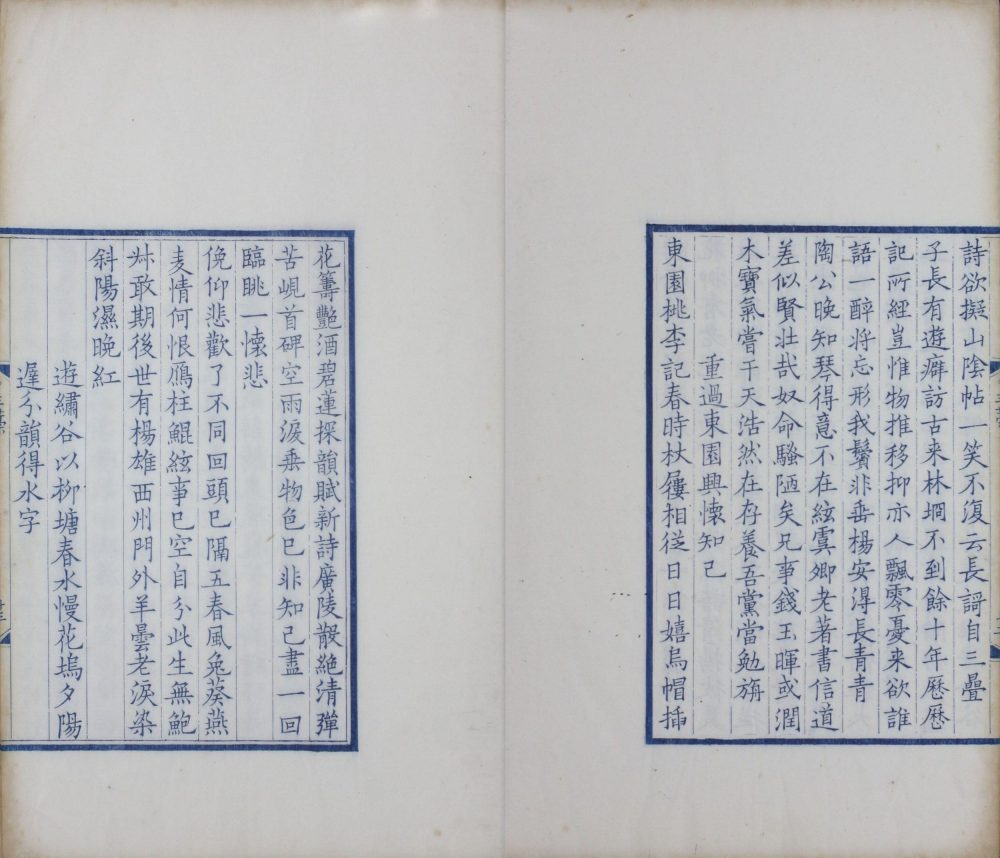 詩欲擬山陰帖一笑不復云長謌自三疊
子長有遊癖訪古来林坰不到餘十年歷歷
記所經豈惟物推移抑亦人飄零憂来欲誰
語一醉将忘形我鬢非垂楊安淂長青青
陶公晚知琴得意不在絃虞卿老著書信道
差似賢壯哉奴命騷陋矣兄事錢玉暉或潤
木寶氣嘗干天浩然在存養吾黨當勉旃
重過東園興懐知己
東園桃李記春時杖屨相従日日嬉烏帽插
花籌艷酒碧蓮探韻賦新詩廣陵散絶清彈
苦峴首碑空雨淚垂物色巳非知己盡一回
臨眺一懐悲
俛仰悲歡了不同回頭巳隔五春風兔葵燕
麦情何恨鴈柱鯤絃事巳空自分此生無鮑
叔敢期後世有楊雄西州門外羊曇老淚染
斜陽濕晚紅
遊繡谷以柳塘春水慢花塢夕陽
遲分韻得水字